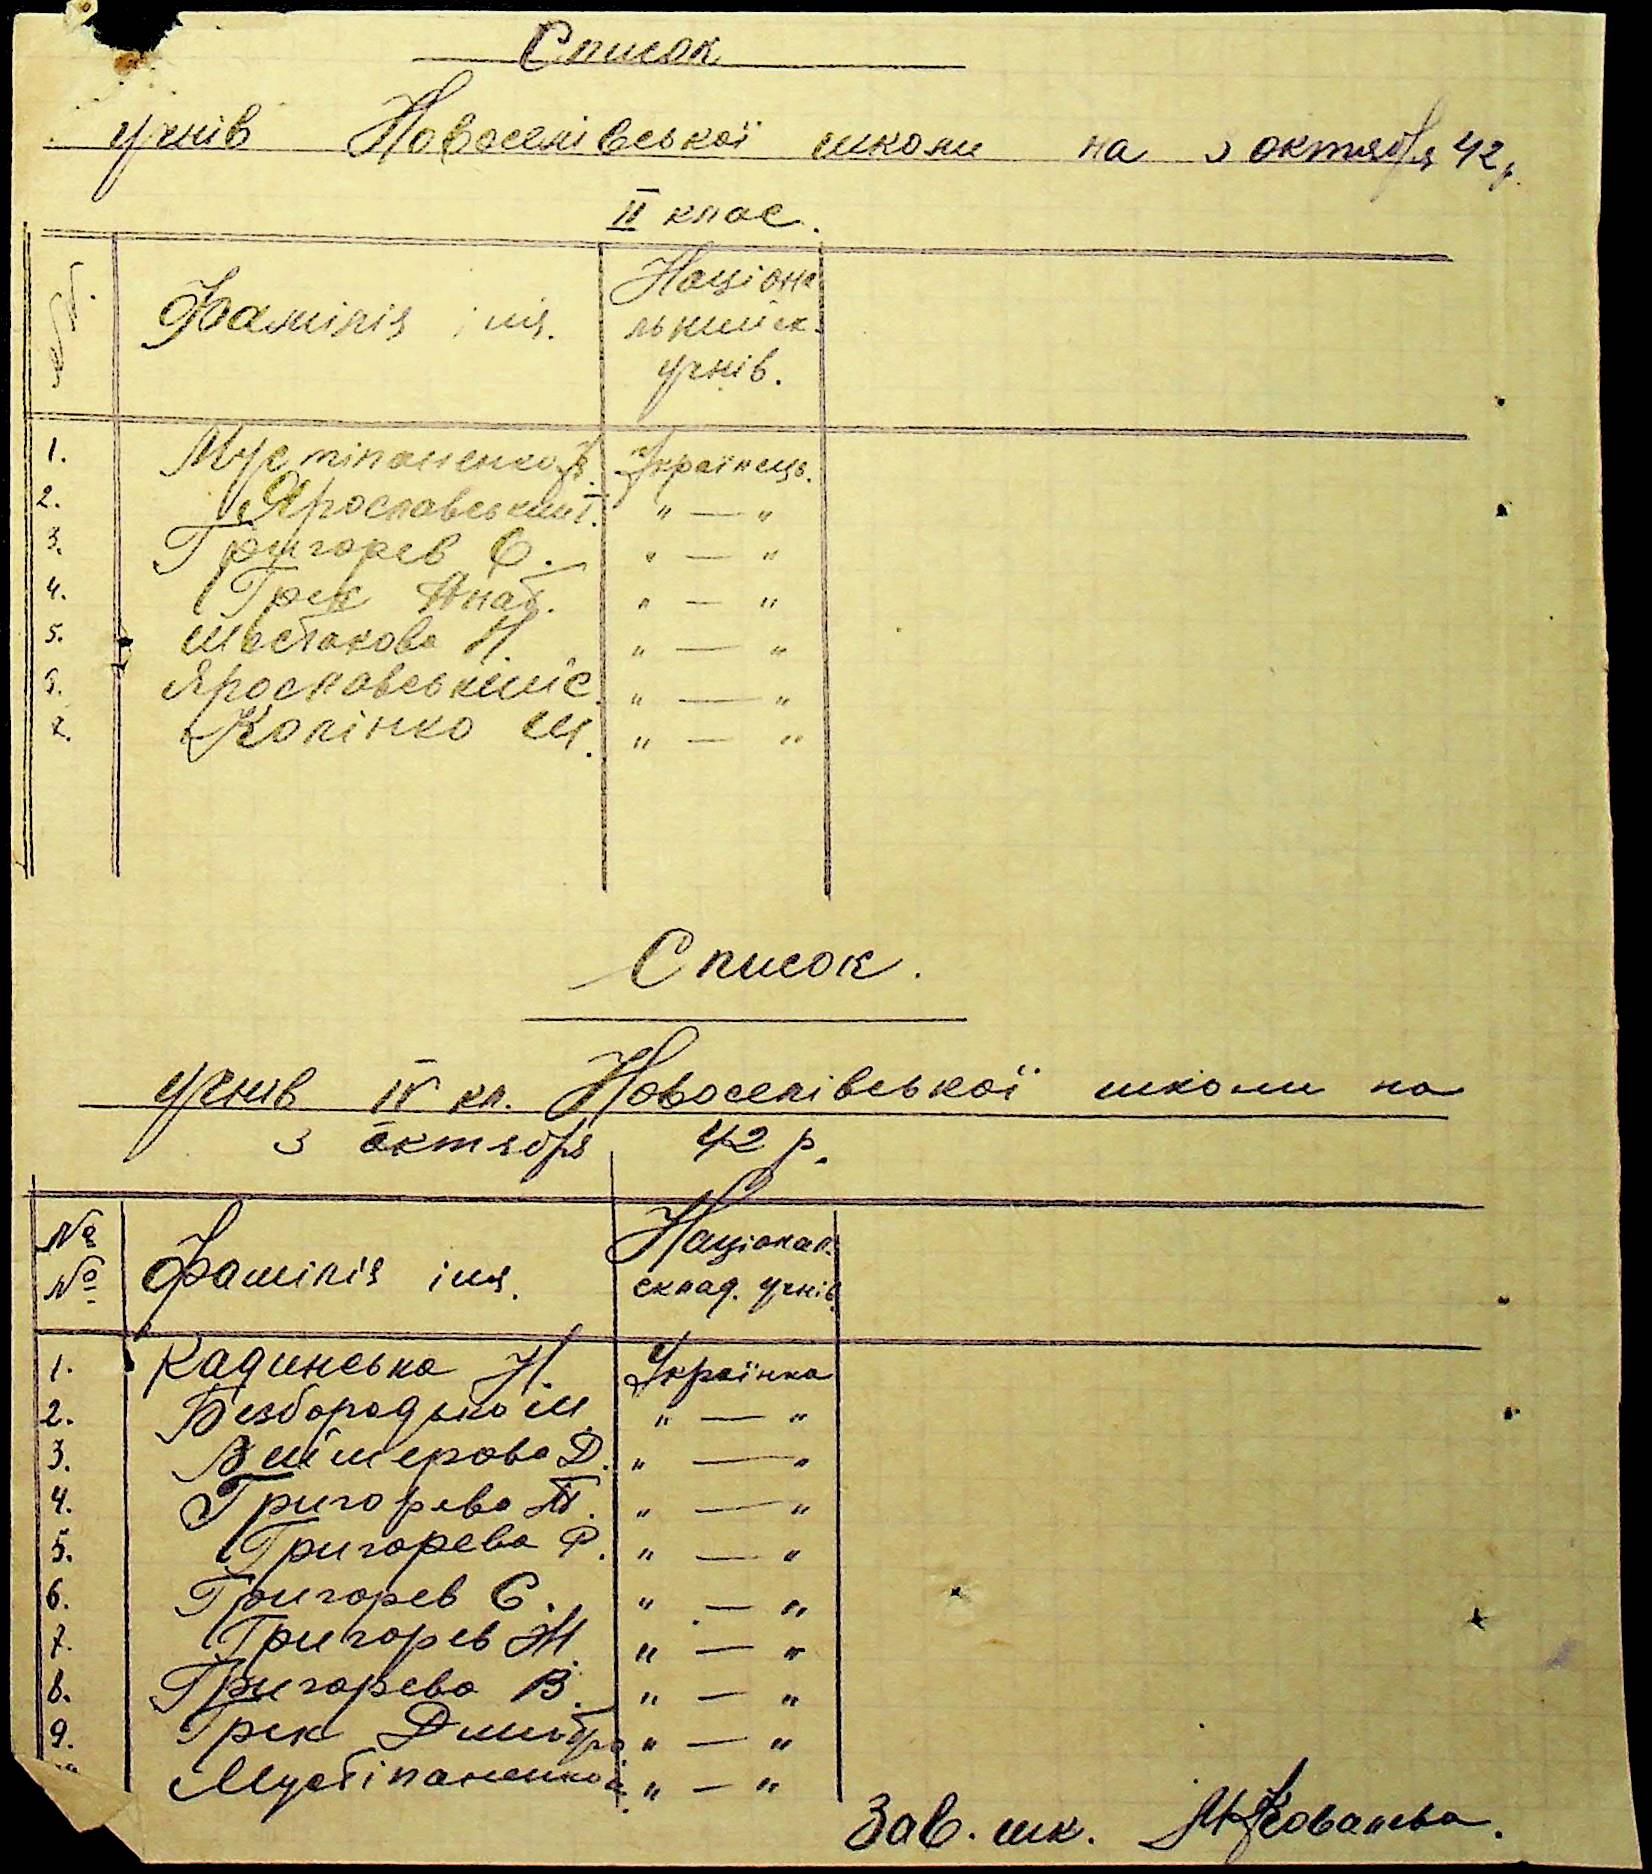 Список
учнів Новоселівської школи на 3 октября 42 р.
II клас.
№№ Фамілія імя. Націона
льний ск.
учнів.
1. Мустіпаненко Українець.
2. Ярославський І. " — "
3. Григорев Є. " — "
4. Грек Анат. " — "
5. Шестакова Н. " — "
6. Ярославський С. " — "
7. Колінко М. " — "
Список.
учнів IV кл. Новоселівської школи на
3 октября 42 р.
№ Фамілія імя. Націонал.
№ склад. учнів.
1. Кадинська Н. Українка
2. Безбородько М. " — "
3. Д. " — "
4. Григорева Т. " — "
5. Григорева Р. " — "
6. Григорев Є. " — "
7. Григорев М. " — "
8. Григорева В. " — "
9. Грек Дмитро " — "
Мустіпаненко " — "
Зав. шк. Ковалева.